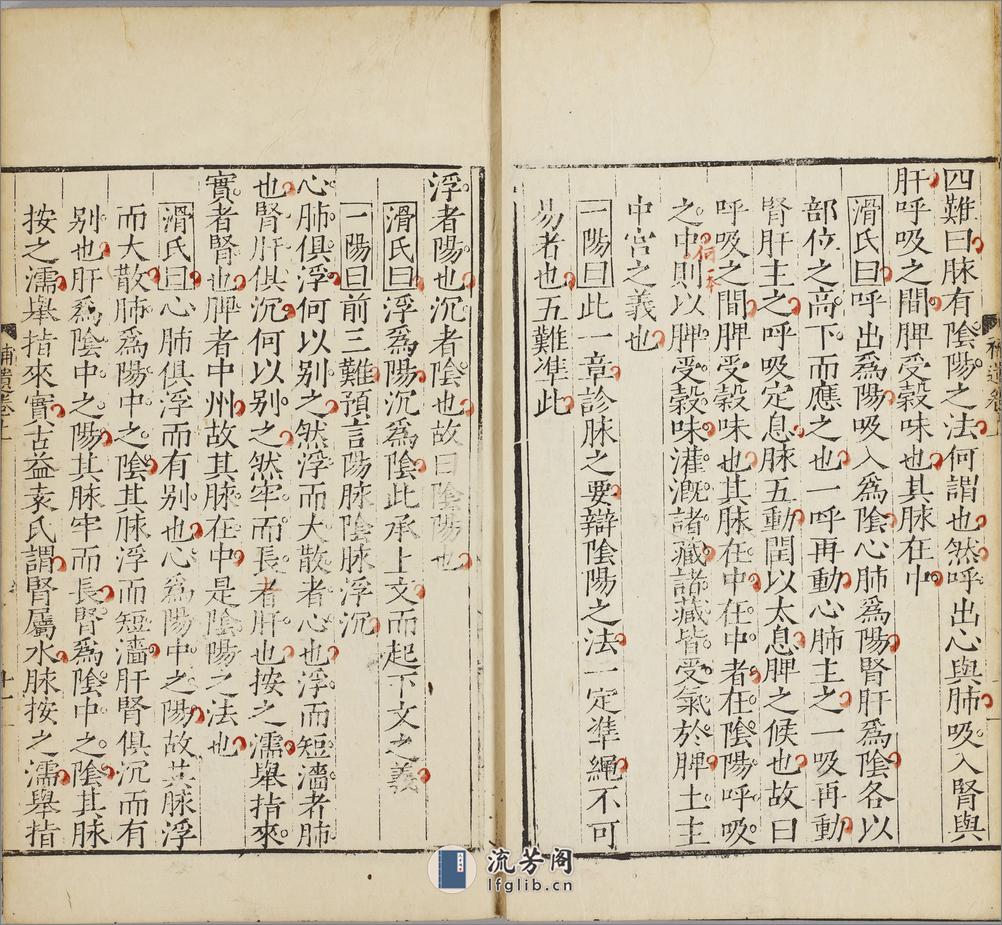 四難曰脉有陰陽之法何謂也然呼出心與肺吸入腎與
肝呼吸之間脾受榖味也其脉在中
滑氏曰呼出爲陽吸入爲陰心肺爲陽腎肝爲陰各以
部位之高下而應之也一呼再動心肺主之一吸再動
腎肝主之呼吸定息脉五動閏以太息脾之候也故曰
呼吸之間脾受榖味也其脉在中在中者在陰陽呼吸
之中何一本則以脾受榖味灌溉諸藏諸藏皆受氣於脾土主
中宫之義也
一陽曰此一章診脉之要辯陰陽之法一定準繩不可
易者也五難準此
補遺卷上
浮者陽也沉者陰也故曰陰陽也
滑氏曰浮爲陽沉爲陰此承上文而起下文之義
一陽曰前三難預言陽脉陰脉浮沉
心肺俱浮何以别之然浮而大散者心也浮而短濇者肺
也腎肝俱沉何以别之然牢而長者肝也按之濡舉指來
實者腎也脾者中州故其脉在中是陰陽之法也
滑氏曰心肺俱浮而有别也心爲陽中之陽故其脉浮
而大散肺爲陽中之陰其脉浮而短濇肝腎俱沉而有
别也肝爲陰中之陽其脉牢而長腎爲陰中之陰其脉
按之濡舉指來實古益袁氏謂腎屬水脉按之濡舉指
補遺卷上
十一
流芳阁
lfglib.cn